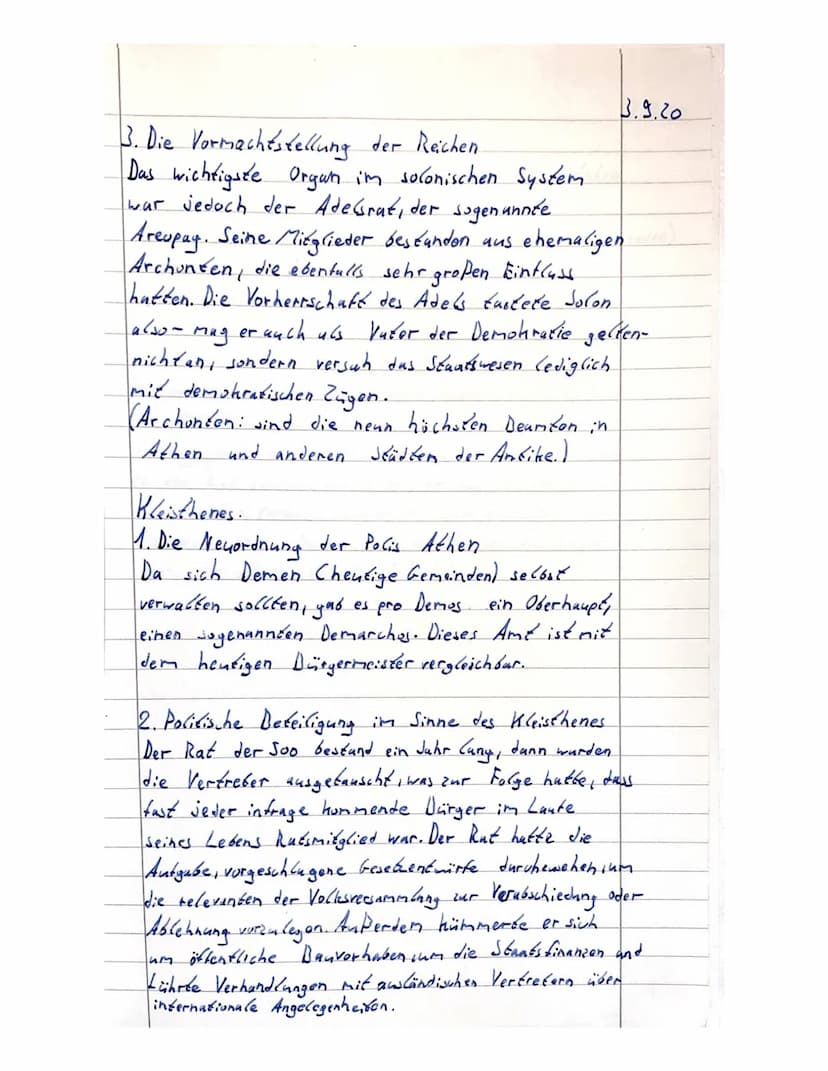 3.9.20
3. Die Vormachtstellung der Reichen
Das wichtigste Organ im solonischen System
war jedoch der Adelsrat, der sogenannte
Areopag. Seine Mitglieder bestanden aus ehemaligen
Archonten, die ebenfalls sehr großen Einfluss
hatten. Die Vorherrschaft des Adels tastete Solon
also - mag er auch als Vater der Demokratie gelten-
nicht an, sondern versah das Staatswesen lediglich
mit demokratischen Zügen.
(Archonten: sind die neun höchsten Beamten in
Athen und anderen Städten der Antike.)
Kleisthenes.
1. Die Neuordnung der Polis Athen
Da sich Demen (heutige Gemeinden) selbst
verwalten sollten, gab es pro Demos ein Oberhaupt,
einen sogenannten Demarchos. Dieses Amt ist mit
dem heutigen Bürgermeister vergleichbar.
2. Politische Beteiligung im Sinne des Kleisthenes
Der Rat der 500 bestand ein Jahr lang, dann wurden
die Vertreter ausgetauscht, was zur Folge hatte, dass
fast jeder infrage kommende Bürger im Laufe
seines Lebens Ratsmitglied war. Der Rat hatte die
Aufgabe, vorgeschlagene Gesetzentwürfe durchzusehen, um
die relevanten der Volksversammlung zur Verabschiedung oder
Ablehnung vorzulegen. Außerdem kümmerte er sich
um öffentliche Bauvorhaben, um die Staatsfinanzen und
führte Verhandlungen mit ausländischen Vertretern über
internationale Angelegenheiten.